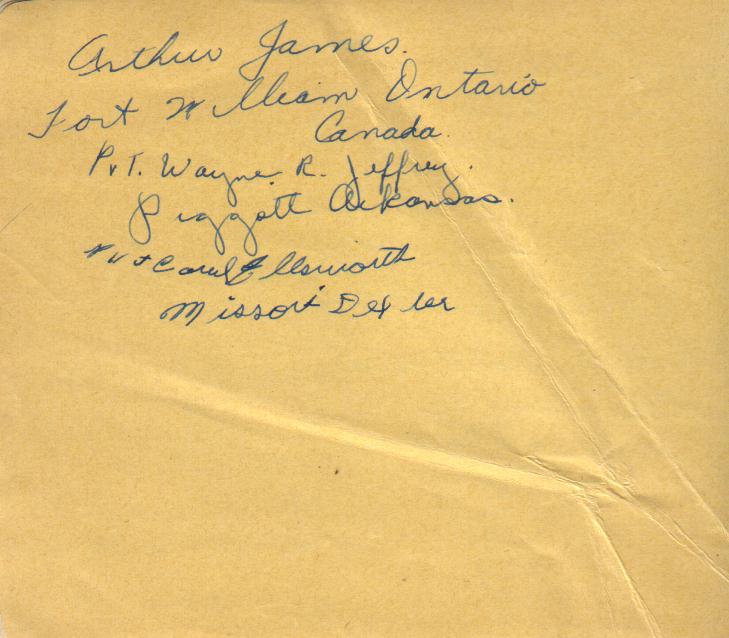 Arthur James.
Fort William Ontario
Canada.
Pvt. Wayne. R. Jeffrey.
Piggott Arkansas.
Pvt Carul Ellsworth
Missori Dexter